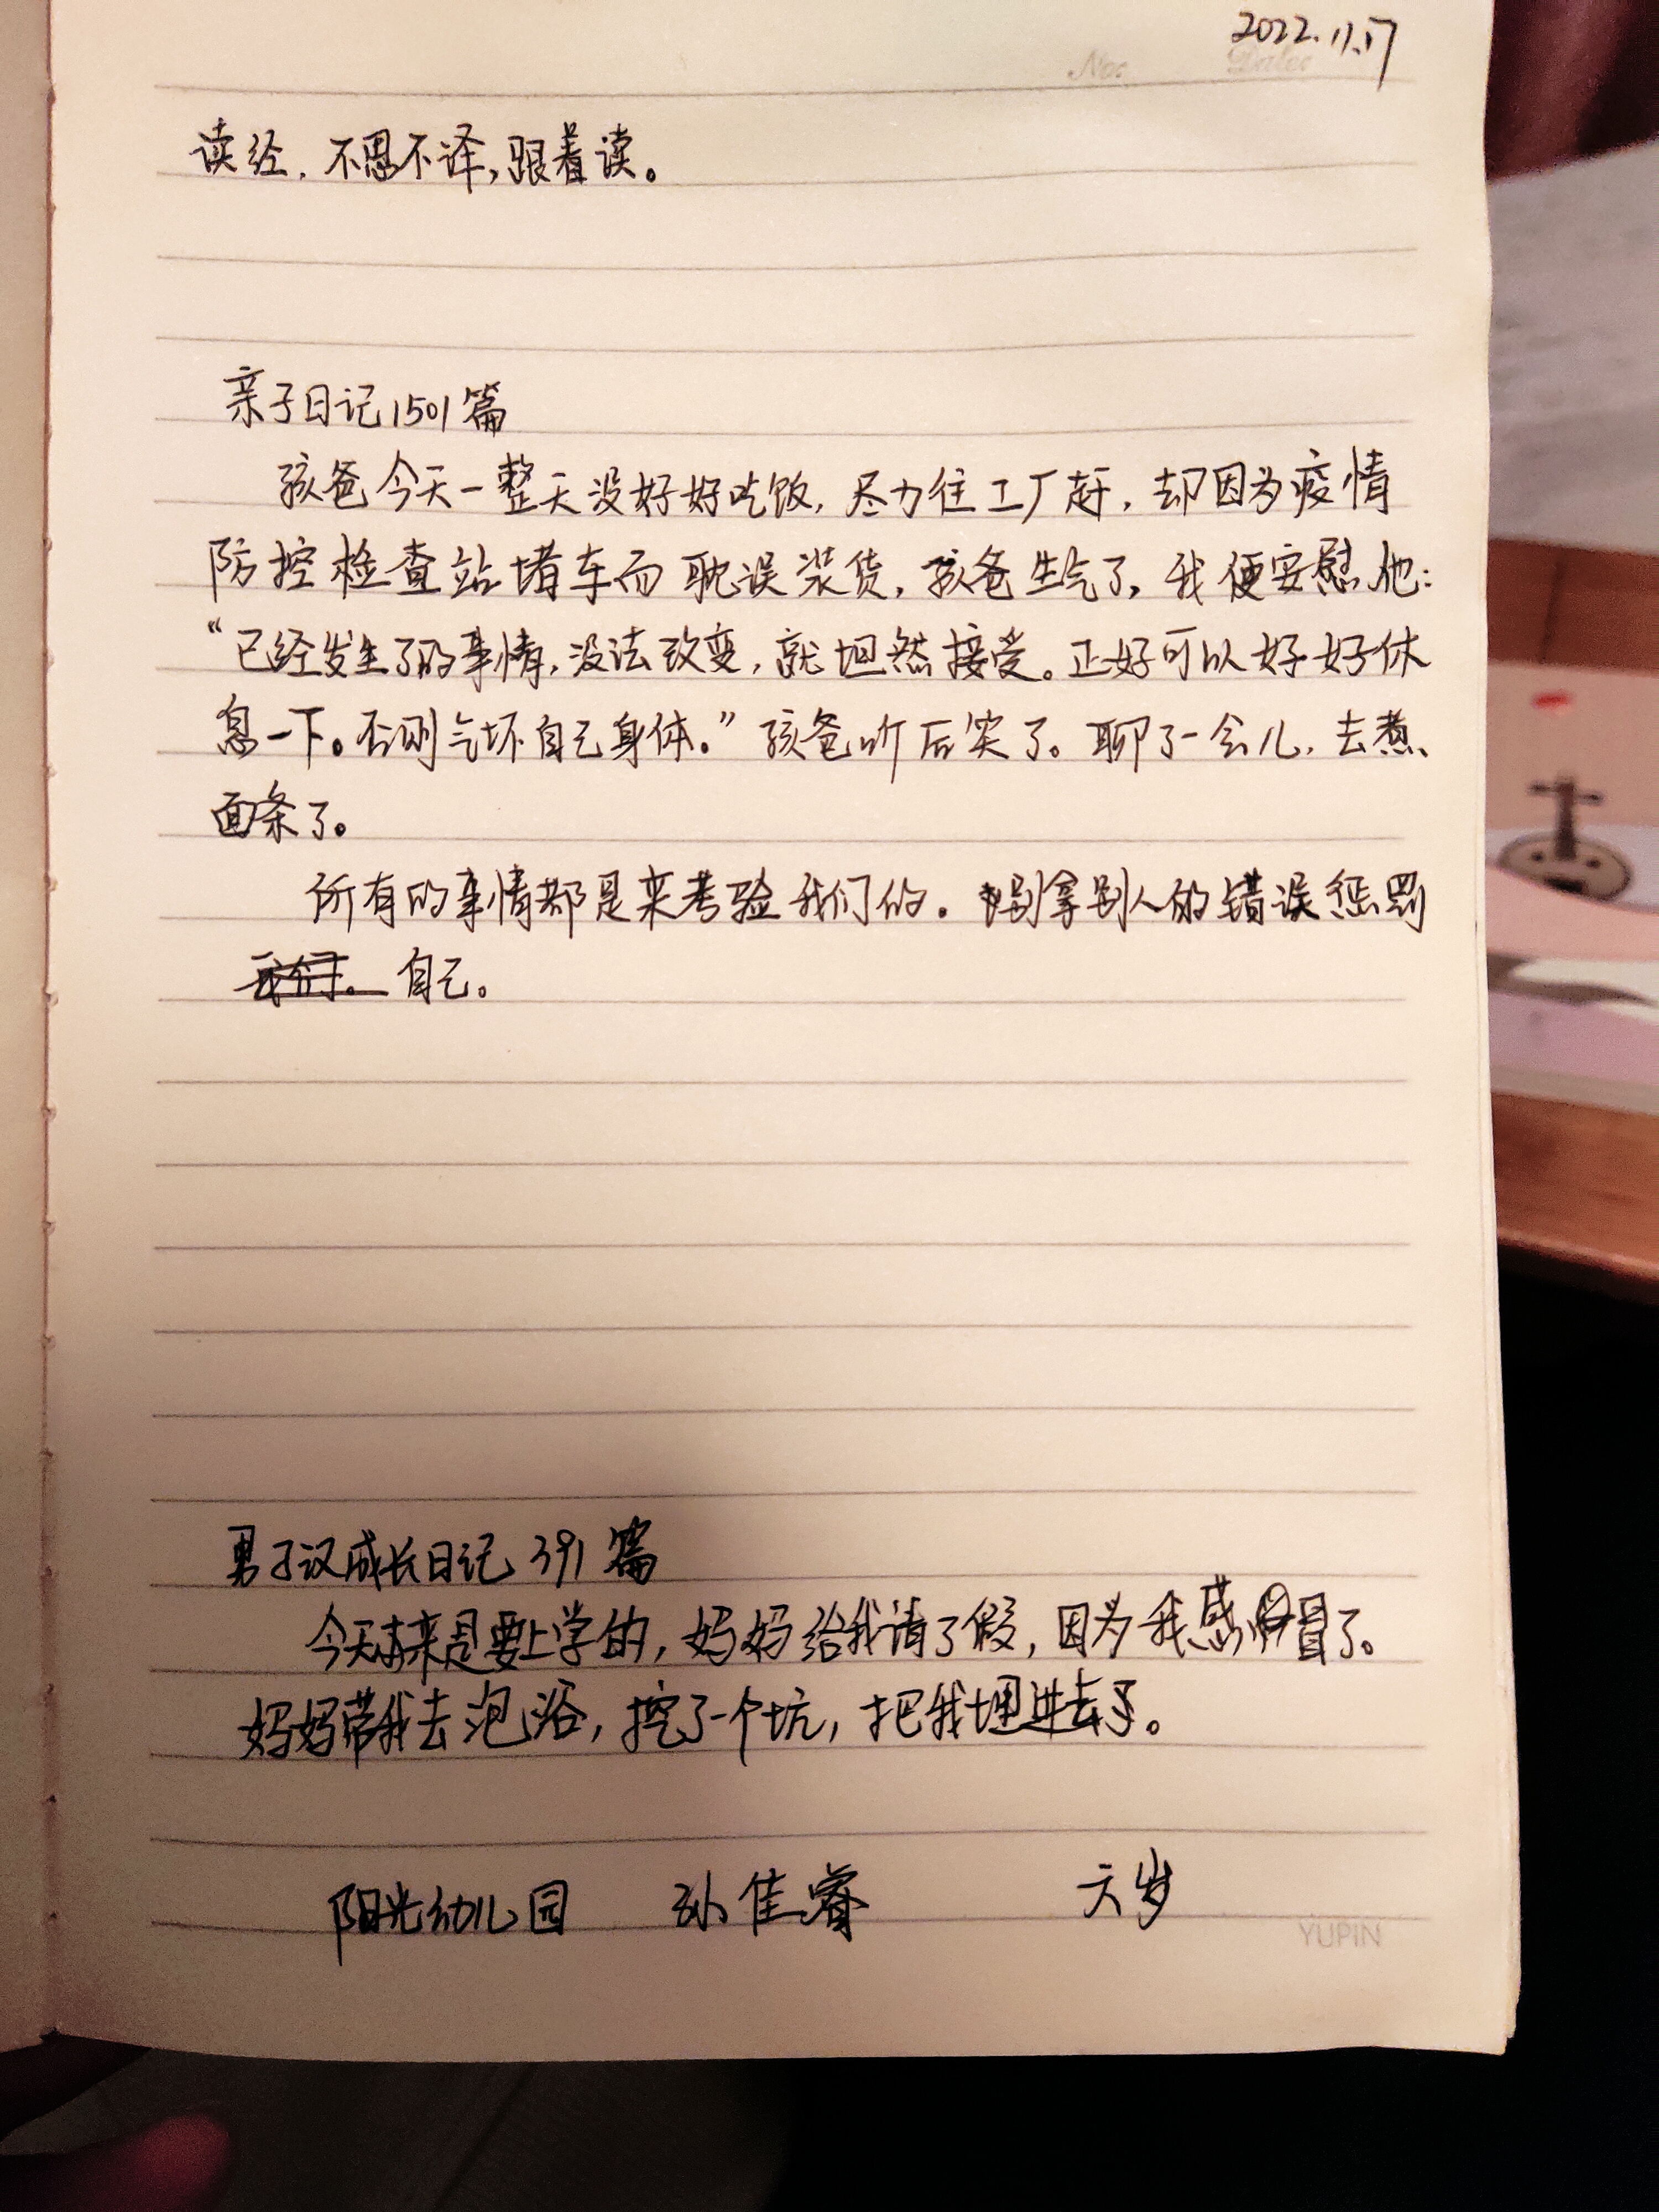 2022.11.17
No. Date:
读经,不思不译,跟着读。
亲子日记1501篇
孩爸今天一整天没好好吃饭,尽力往工厂赶,却因为疫情
防控检查站堵车而耽误装货,孩爸生气了,我便安慰他:
“已经发生了的事情,没法改变,就坦然接受。正好可以好好休
息一下。否则气坏自己身体。”孩爸听后笑了。聊了一会儿,去煮
面条了。
所有的事情都是来考验我们的。别拿别人的错误惩罚
我们。自己。
男子汉成长日记 391 篇
今天本来是要上学的,妈妈给我请了假,因为我感冒了。
妈妈带我去泡浴,挖了一个坑,把我埋进去了。
阳光幼儿园 孙佳睿 六岁
YUPIN